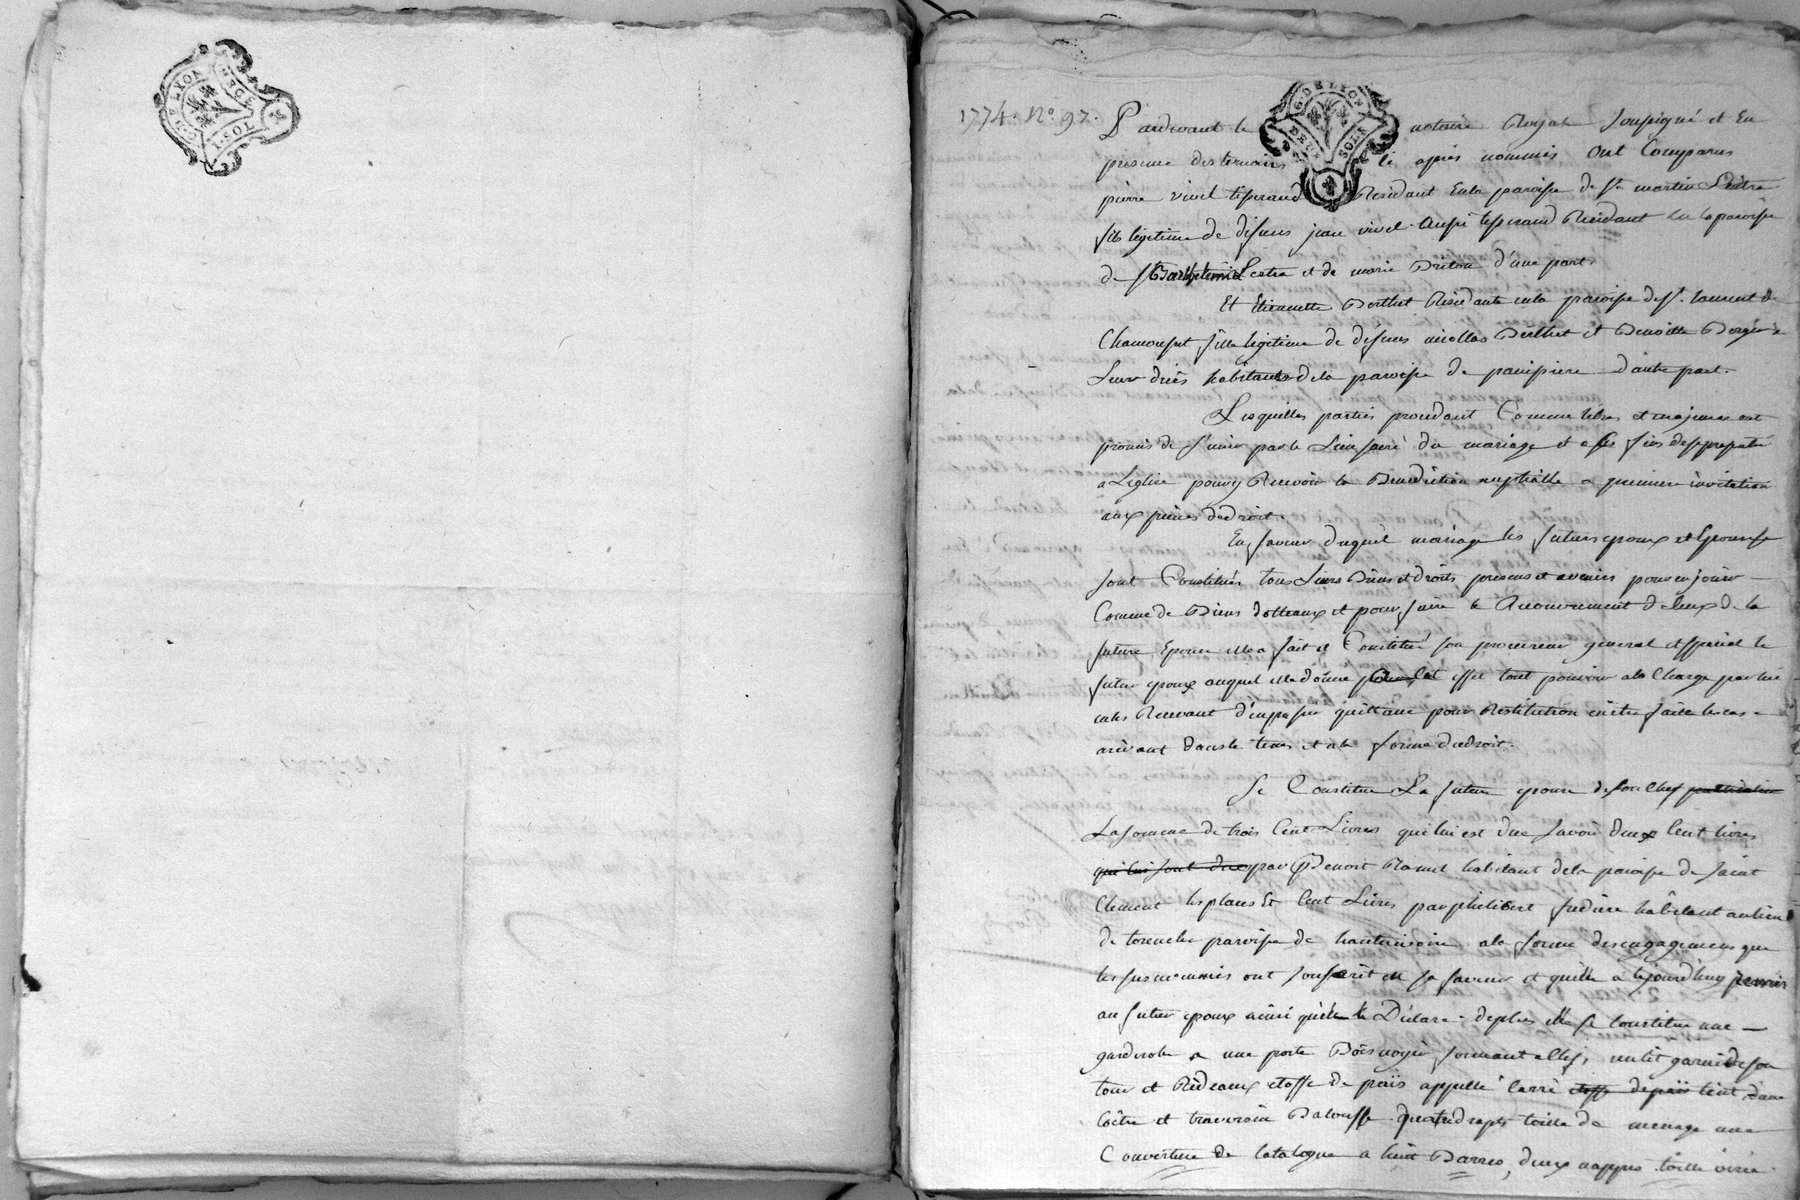 G. DE LYON
1. SOL
1774. N.o 97.
G. DE LYON
DEUX SOLS
Pardevant le notaire Royal soussigné et En
presence des temoins cy après nommés Ont Comparus
pierre vivel tisserand Résidant En la paroisse de St martin Lestra
fils légitime de défuns jean vivel aussi tisserand Résidant en la paroisse
de St Barthelemi Lestra et de marie Breton d'une part.
Et Etiennette Berthet Résidante en la paroisse de St. laurent de
Chamousset fille légitime de défuns nicollas Berthet et Benoitte
habitants de la paroisse de panissiere d'autre part.
Lesquelles parties procedant Comme libres et majeures ont
promis de s'unir par le Lien sacré du mariage et a ces fins de se presenter
a L'eglise pour y Recevoir la Benediction nuptialle a premiere invitation
aux peines de droit.
En faveur duquel mariage les futurs epoux et Epouse se
sont Constitués tous Leurs Biens et droits presens et avenirs pour en jouir
Comme de Biens dotteaux et pour faire le Recouvrement de ceux de la
future Epouse elle a fait et Constitué son procureur general et special le
futur epoux auquel elle donne pour cet effet tout pouvoir a la Charge par lui
en les Recevant d'en passer quittance pour Restitution en etre faite le cas
arivant dans le tems et a la forme de droit.
Se Constitue La future epouse de son Chef
La somme de trois Cent Livres qui lui est due savoir deux Cent livres
qui lui sont dues par Benoit Ramel habitant de la paroisse de saint
Clement les places Et Cent Livres par philibert habitant au lieu
de paroisse de hauterivoire a la forme des engagemens que
les susnommés ont en sa faveur et qu'elle a cejourd'huy remis
au futur epoux ainsi qu'elle le Déclare. de plus elle se Constitue une
garderobe a une porte Bois noyer fermant a Clef, un lit garni de son
tour et Rideaux etoffe de païs appellé Carré etoffe de païs d'une
Coetre et traversin Baloufle quatre draps toille de menage une
Couverture de Catalogne a huit Barres, deux nappes toille